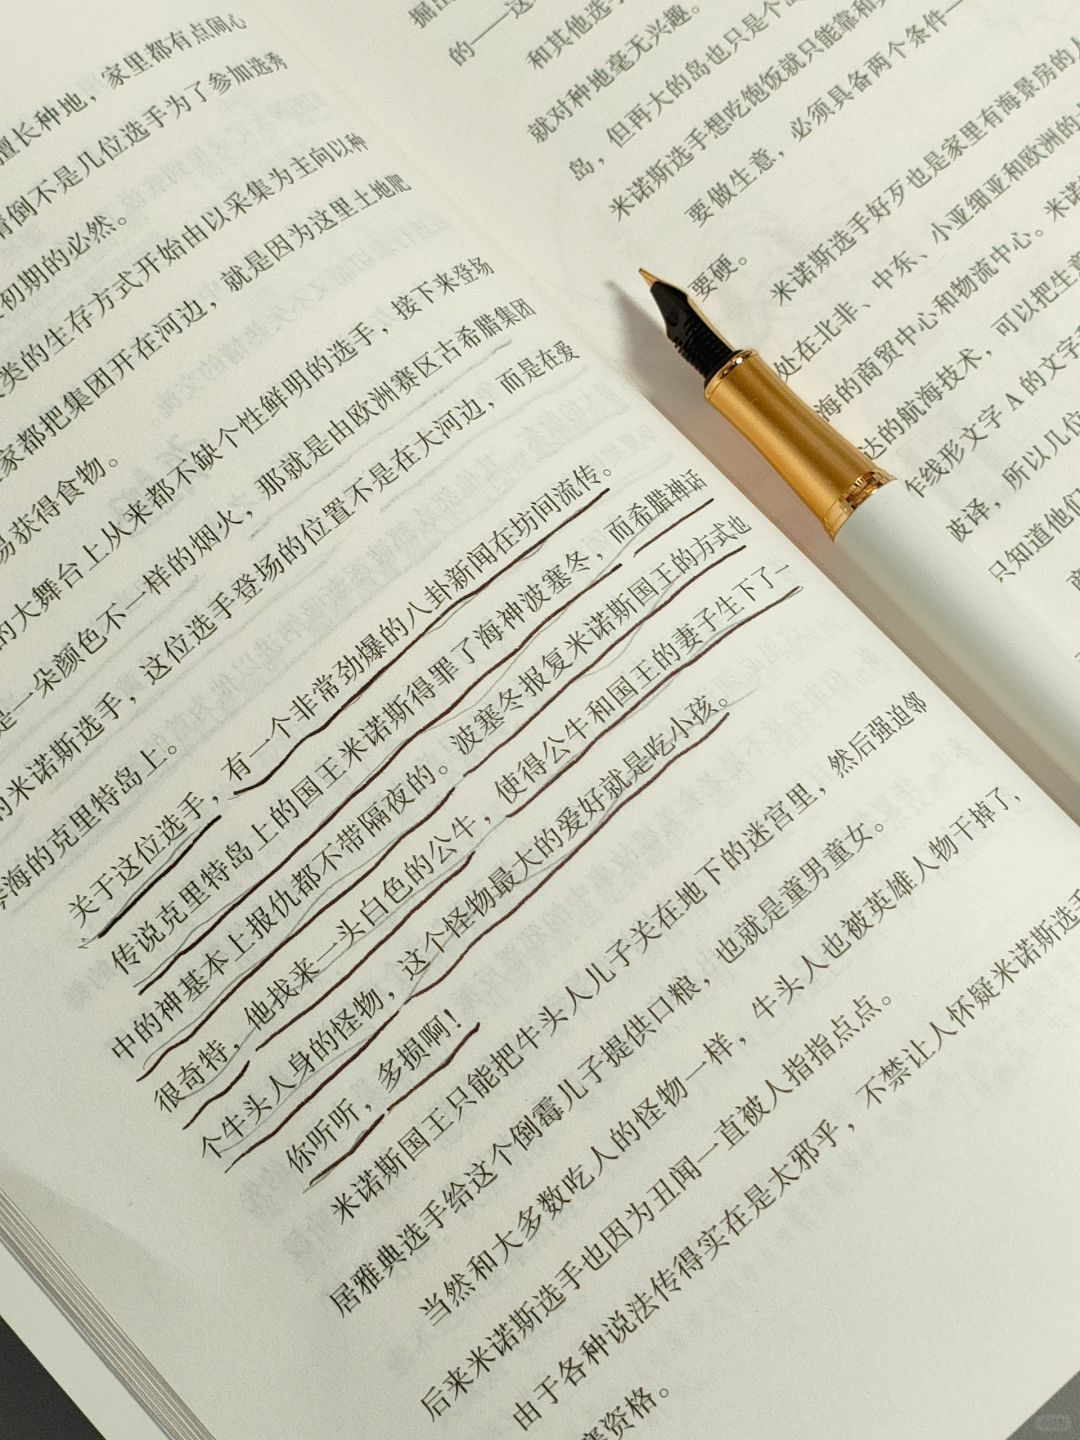 擅长种地，家里都有点闹心
倒不是几位选手为了参加选秀
初期的必然。
类的生存方式开始由以采集为主向以种
家都把集团开在河边，就是因为这里土地肥
易获得食物。
的大舞台上从来都不缺个性鲜明的选手，接下来登场
是一朵颜色不一样的烟火，那就是由欧洲赛区古希腊集团
的米诺斯选手，这位选手登场的位置不是在大河边，而是在爱
琴海的克里特岛上。
关于这位选手，有一个非常劲爆的八卦新闻在坊间流传。
传说克里特岛上的国王米诺斯得罪了海神波塞冬，而希腊神话
中的神基本上报仇都不带隔夜的。波塞冬报复米诺斯国王的方式也
很奇特，他找来一头白色的公牛，使得公牛和国王的妻子生下了一
个牛头人身的怪物，这个怪物最大的爱好就是吃小孩。
你听听，多损啊！
米诺斯国王只能把牛头人儿子关在地下的迷宫里，然后强迫邻
居雅典选手给这个倒霉儿子提供口粮，也就是童男童女。
当然和大多数吃人的怪物一样，牛头人也被英雄人物干掉了，
后来米诺斯选手也因为丑闻一直被人指指点点。
由于各种说法传得实在是太邪乎，不禁让人怀疑米诺斯选手
赛资格。
掘出
的——这
和其他选手
就对种地毫无兴趣。
岛，但再大的岛也只是个岛
米诺斯选手想吃饱饭就只能靠和其
要做生意，必须具备两个条件——
米诺斯选手好歹也是家里有海景房的人
要硬。
处在北非、中东、小亚细亚和欧洲的
海的商贸中心和物流中心。米诺
达的航海技术，可以把生意
作线形文字 A 的文字
破译，所以几位
只知道他们
商